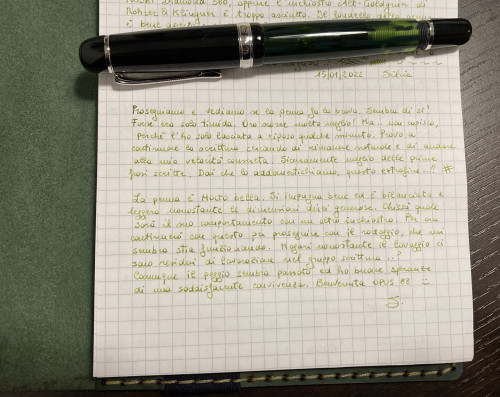 Diamond 580, oppure l'inchiostro Alt-Goldgrün di
Rohrer & Klingner è troppo asciutto. Se
è bene
15/01/2022 Silvia
Proseguiamo e vediamo se la penna fa la brava. Sembra di sì!
Forse era solo timida. Ora scrive molto meglio! Ma non capisco,
perché l'ho solo lasciata a riposo qualche minuto. Provo a
continuare la scrittura cercando di rimanere naturale e di andare
alla mia velocità consueta. Sicuramente meglio delle prime
frasi scritte. Dai che lo addomestichiamo, questo
La penna è molto bella. Si impugna bene ed è bilanciata e
leggera nonostante le dimensioni direi generose. Chissà quale
sarà il suo comportamento con un altro inchiostro. Per ora
continuerò con questo per proseguire con il rodaggio, che mi
sembra stia funzionando. Magari nonostante il lavaggio ci
sono residui di lavorazione nel gruppo scrittura ...?
Comunque il peggio sembra passato ed ho buone speranze
di una soddisfacente convivenza. Benvenuta OPUS 88
S.